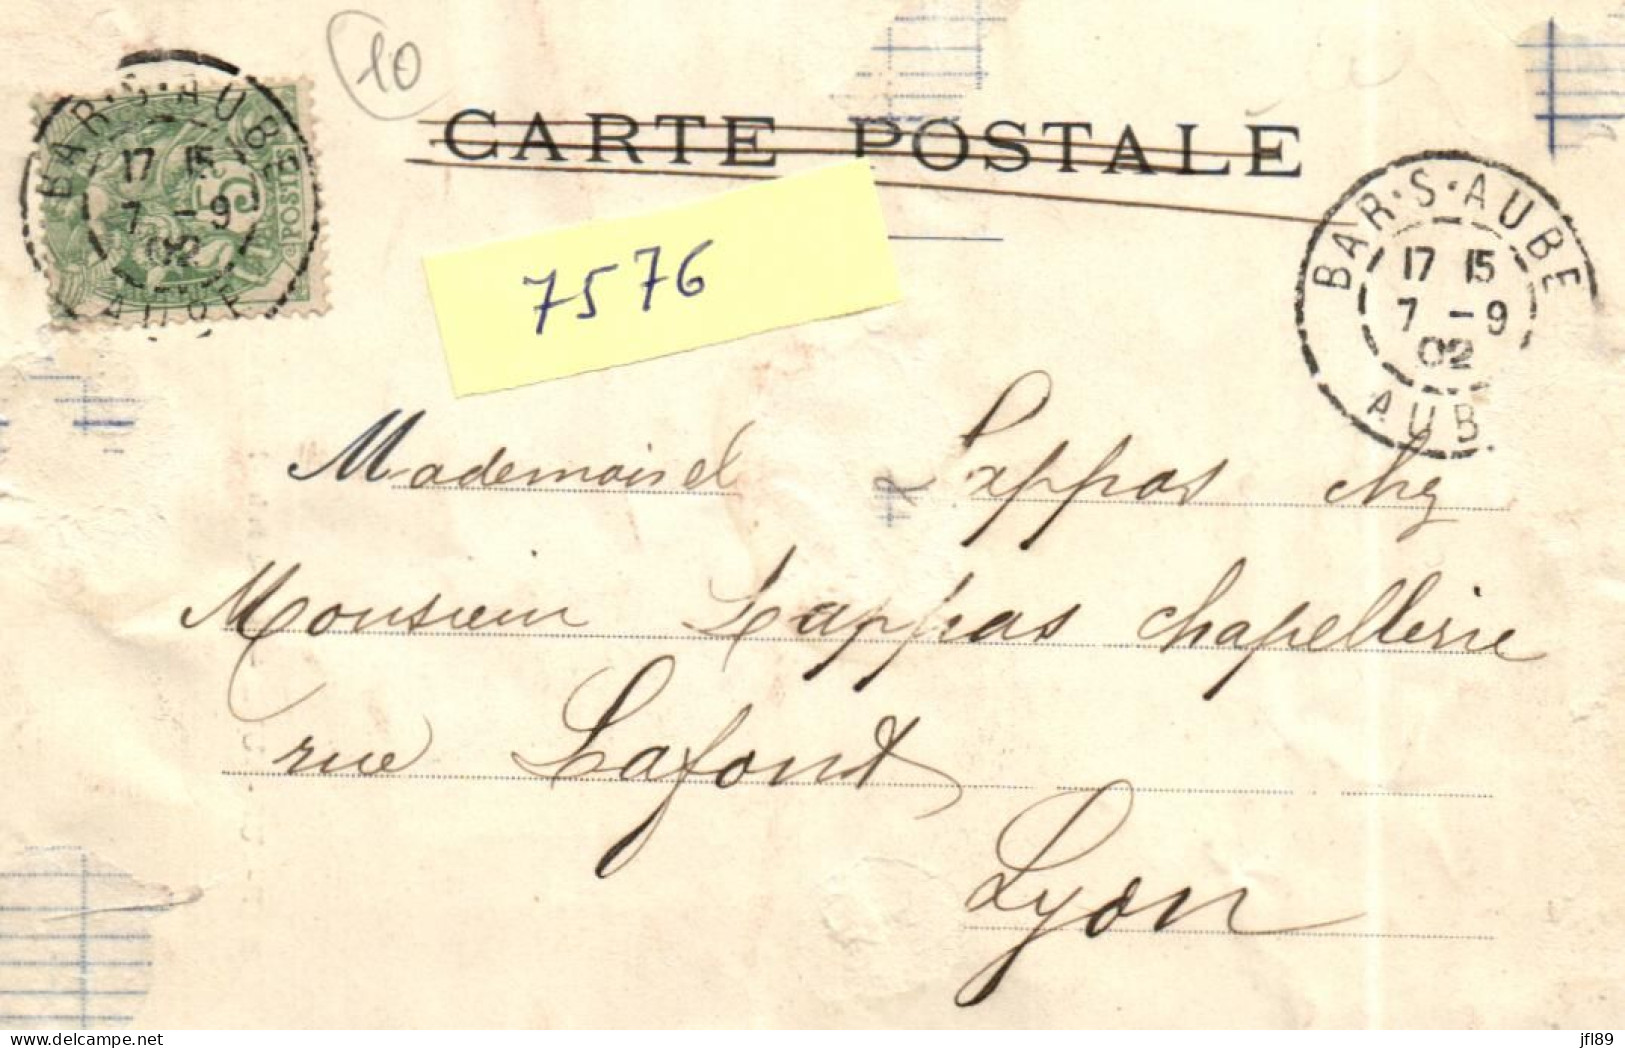 10
CARTE POSTALE
BAR·S·AUBE
17 15
7 -9
02
AUBE
5
POSTES
BAR·S·AUBE
17 15
7 -9
02
AUB.
7576
Mademoisel Lappas chez
Monsieur Lappas chapellerie
rue Lafont
Lyon
jfl89